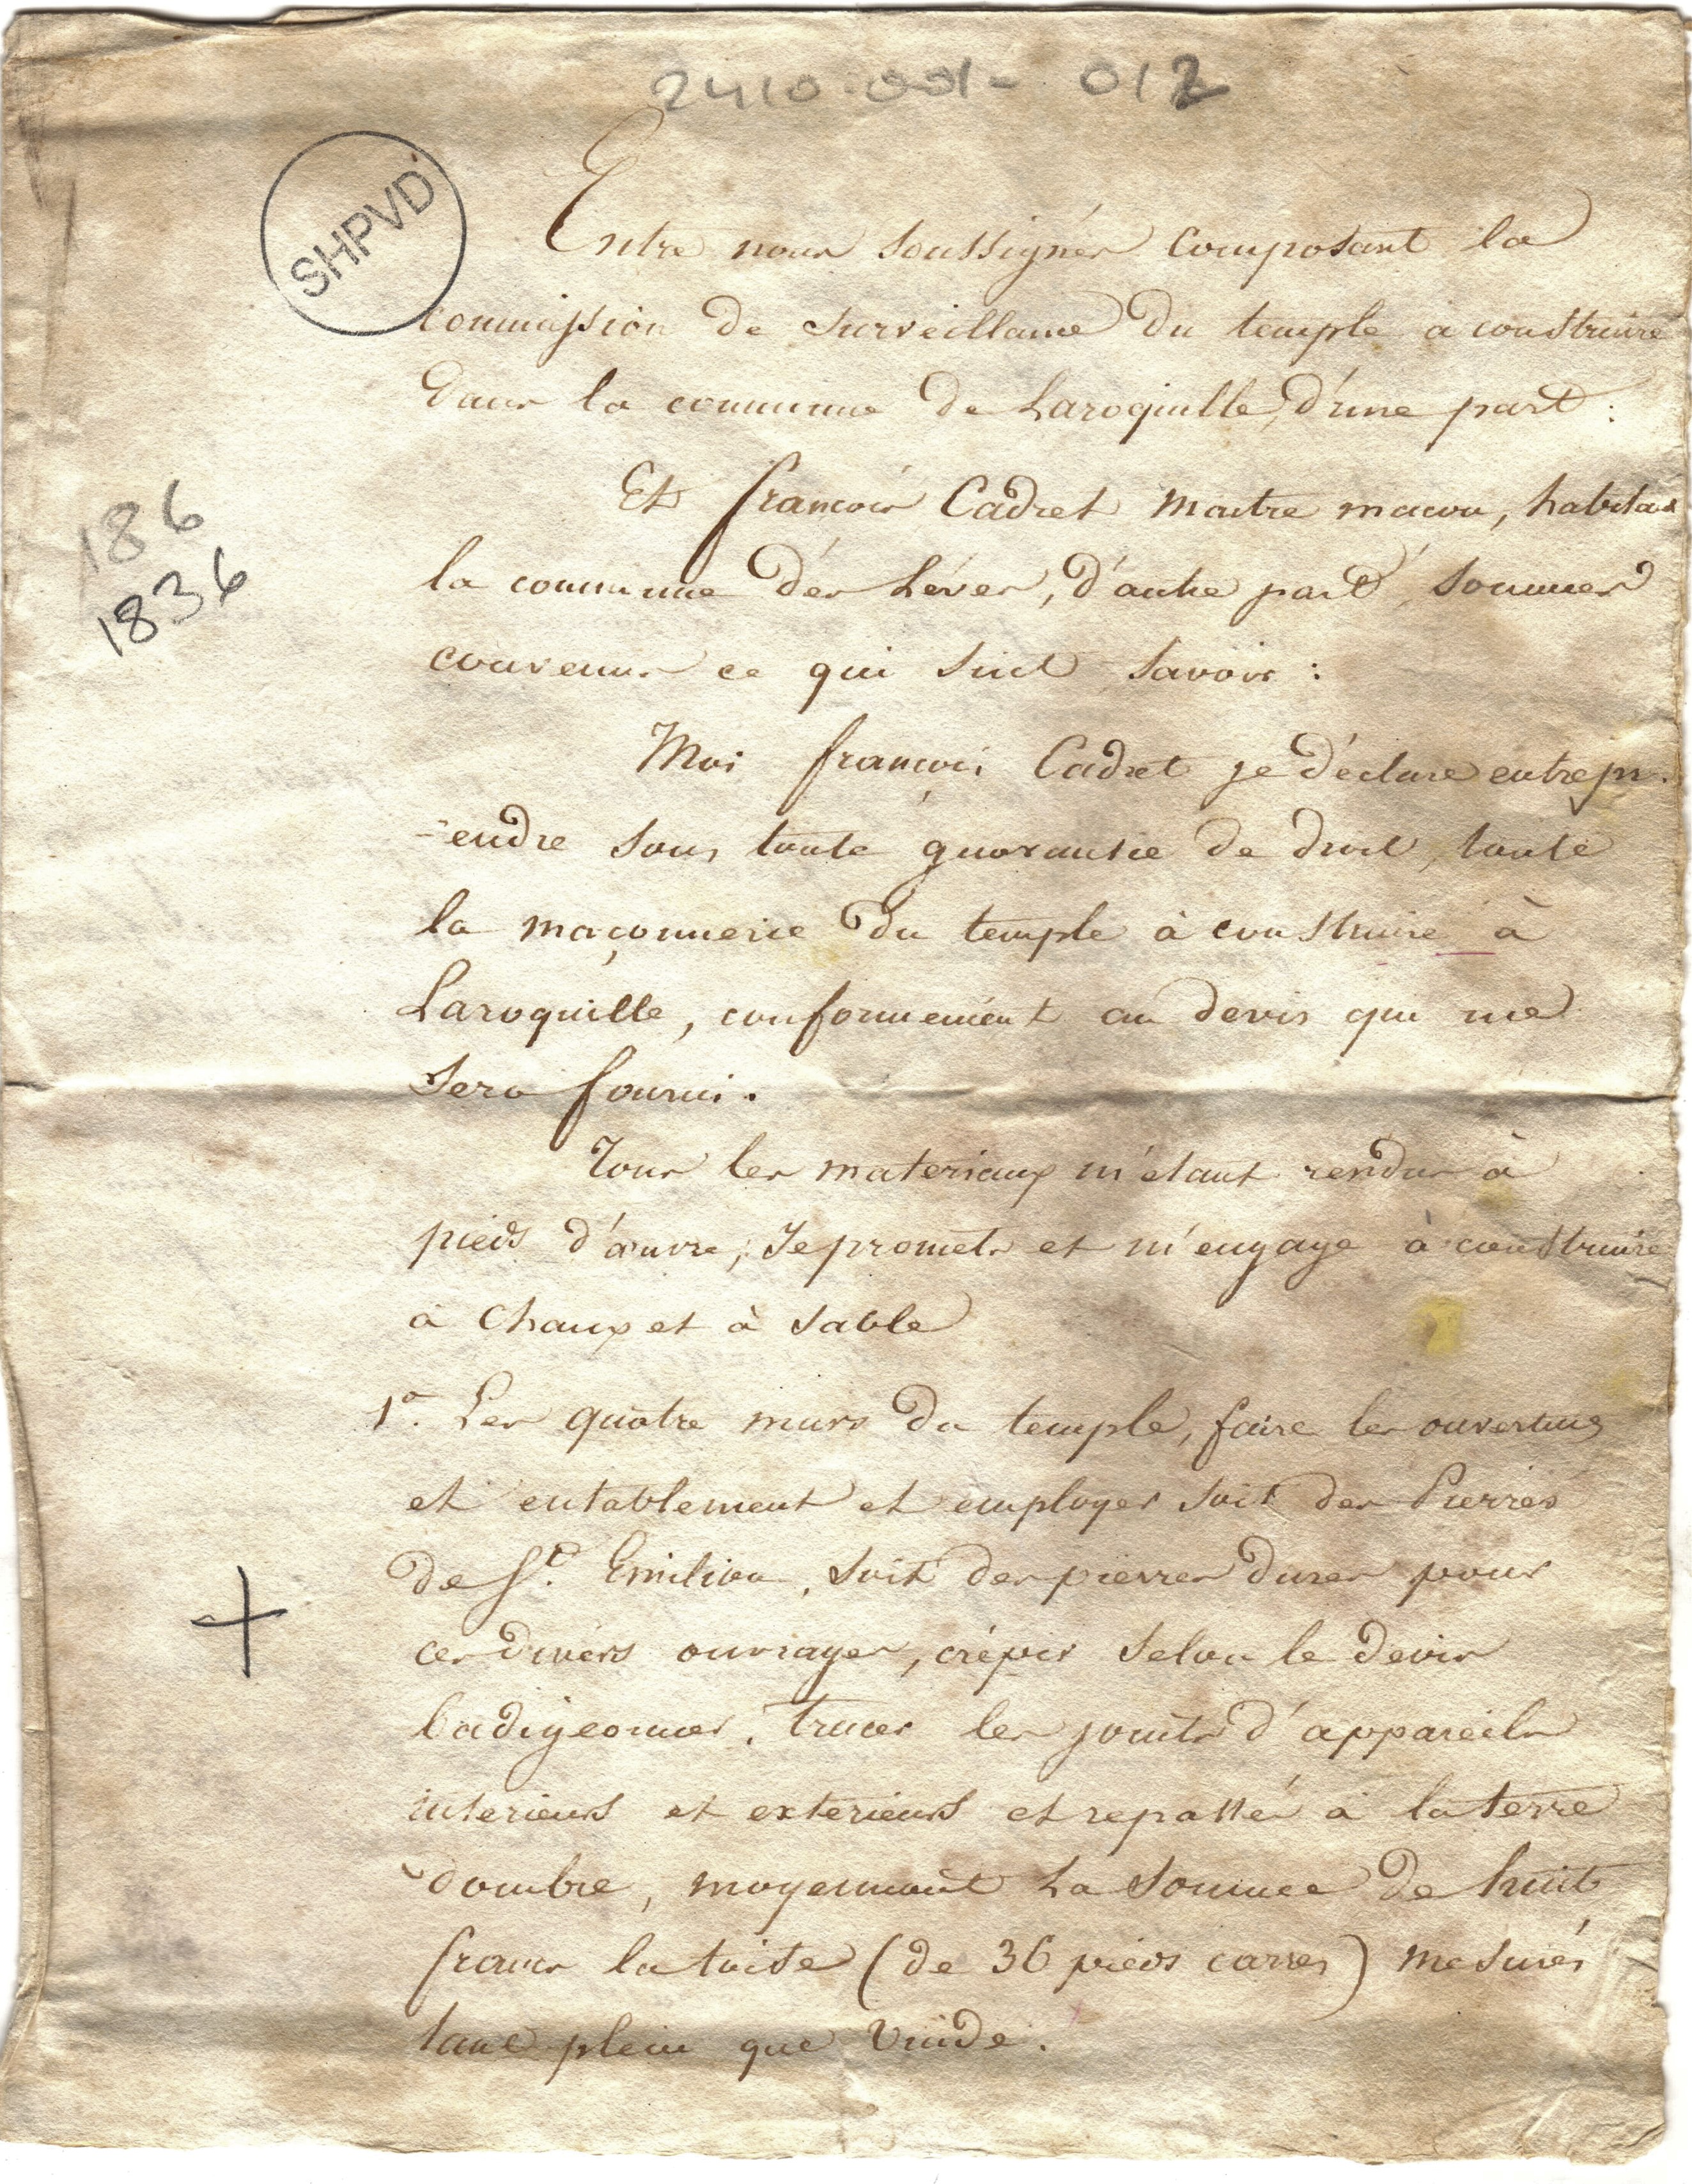 2410-001-012
SHPVD
Entre nous soussignés composant la
commission de surveillance du temple a construire
dans la commune de Laroquille, d'une part :
Et françois Cadret maitre macon, habitan
la commune dés Léves, d'autre part, sommes
convenus ce qui suit savoir :
186
1836
Moi françois Cadret je déclare entrepr.
-endre sous toute guarantie de droit, toute
la maçonnerie du temple à construire à
Laroquille, conformément au devis qui me
sera fourni.
Tous les materiaux m'étant rendus à
pieds d'œuvre, Je promets et m'engage à construire
à chaux et à sable
1º. Les quatre murs du temple, faire les ouvertures
et entablement et employer soit des Pierres
de St. Emilion, soit des pierres dures pour
ces divers ouvrages, crépir selon le devis
badigeonner, tracer les joints d'appareils
interieurs et exterieurs et repassés à la terre
d'ombre, moyennant La somme de huit
francs la toise (de 36 pieds carrés) mesurés
tant plein que vuide.